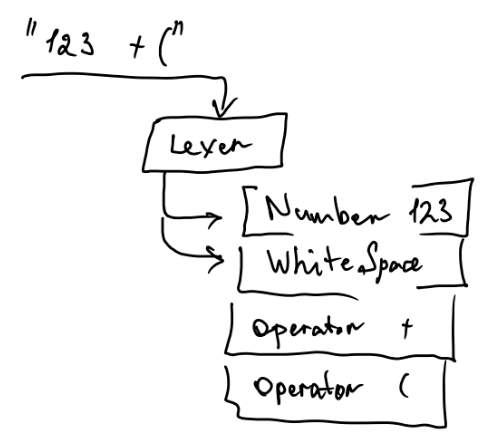 "123 + ("
Lexer
Number 123
WhiteSpace
Operator +
Operator (